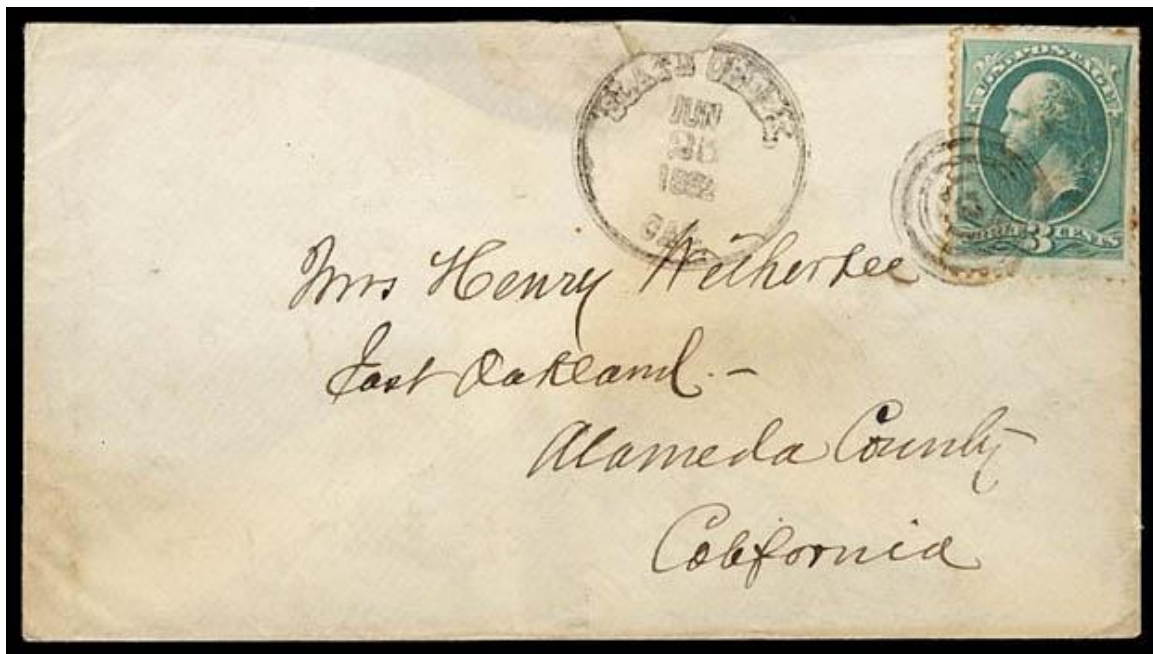 JUN
1882
CAL.
U.S. POSTAGE
3 CENTS
Mrs Henry Wetherbee
East Oakland.-
Alameda County
California